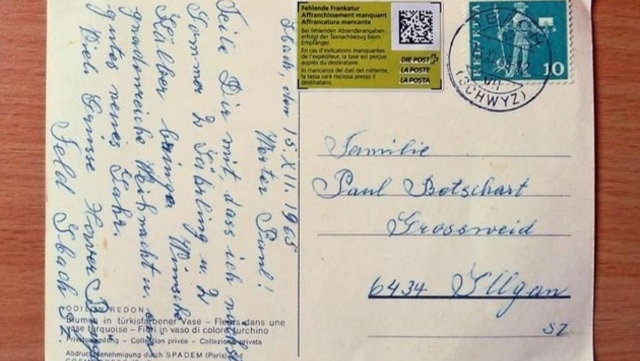 Ibach den 15. XII. 1965
Werter Paul!
Teile Dir mit, dass ich
Sommer 2 u. 2
Kälber Wünsche
gnadenreiche Weihnacht u.
guter neues Jahr.
Viele Grüsse
Feld Ibach SZ
Fehlende Frankatur
Affranchissement manquant
Affrancatura mancante
Bei fehlenden Absenderangaben
erfolgt der Taxnachbezug beim
Empfänger.
En cas d'indications manquantes
de l'expéditeur, la taxe est perçue
auprès du destinataire.
In mancanza dei dati del mittente, la
tassa sarà riscossa presso il
destinatario.
DIE POST
LA POSTE
LA POSTA
HELVETIA
10
(SCHWYZ)
Familie
Paul Betschart
Grossweid
6434 Illgau
SZ
ODILON REDON
Blumen in türkisfarbener Vase – Fleurs dans une
vase turquoise – Fiori in vaso di colore turchino
Privatsammlung – Collection privée – Collezione privata
Abdruckgenehmigung durch SPADEM (Paris)